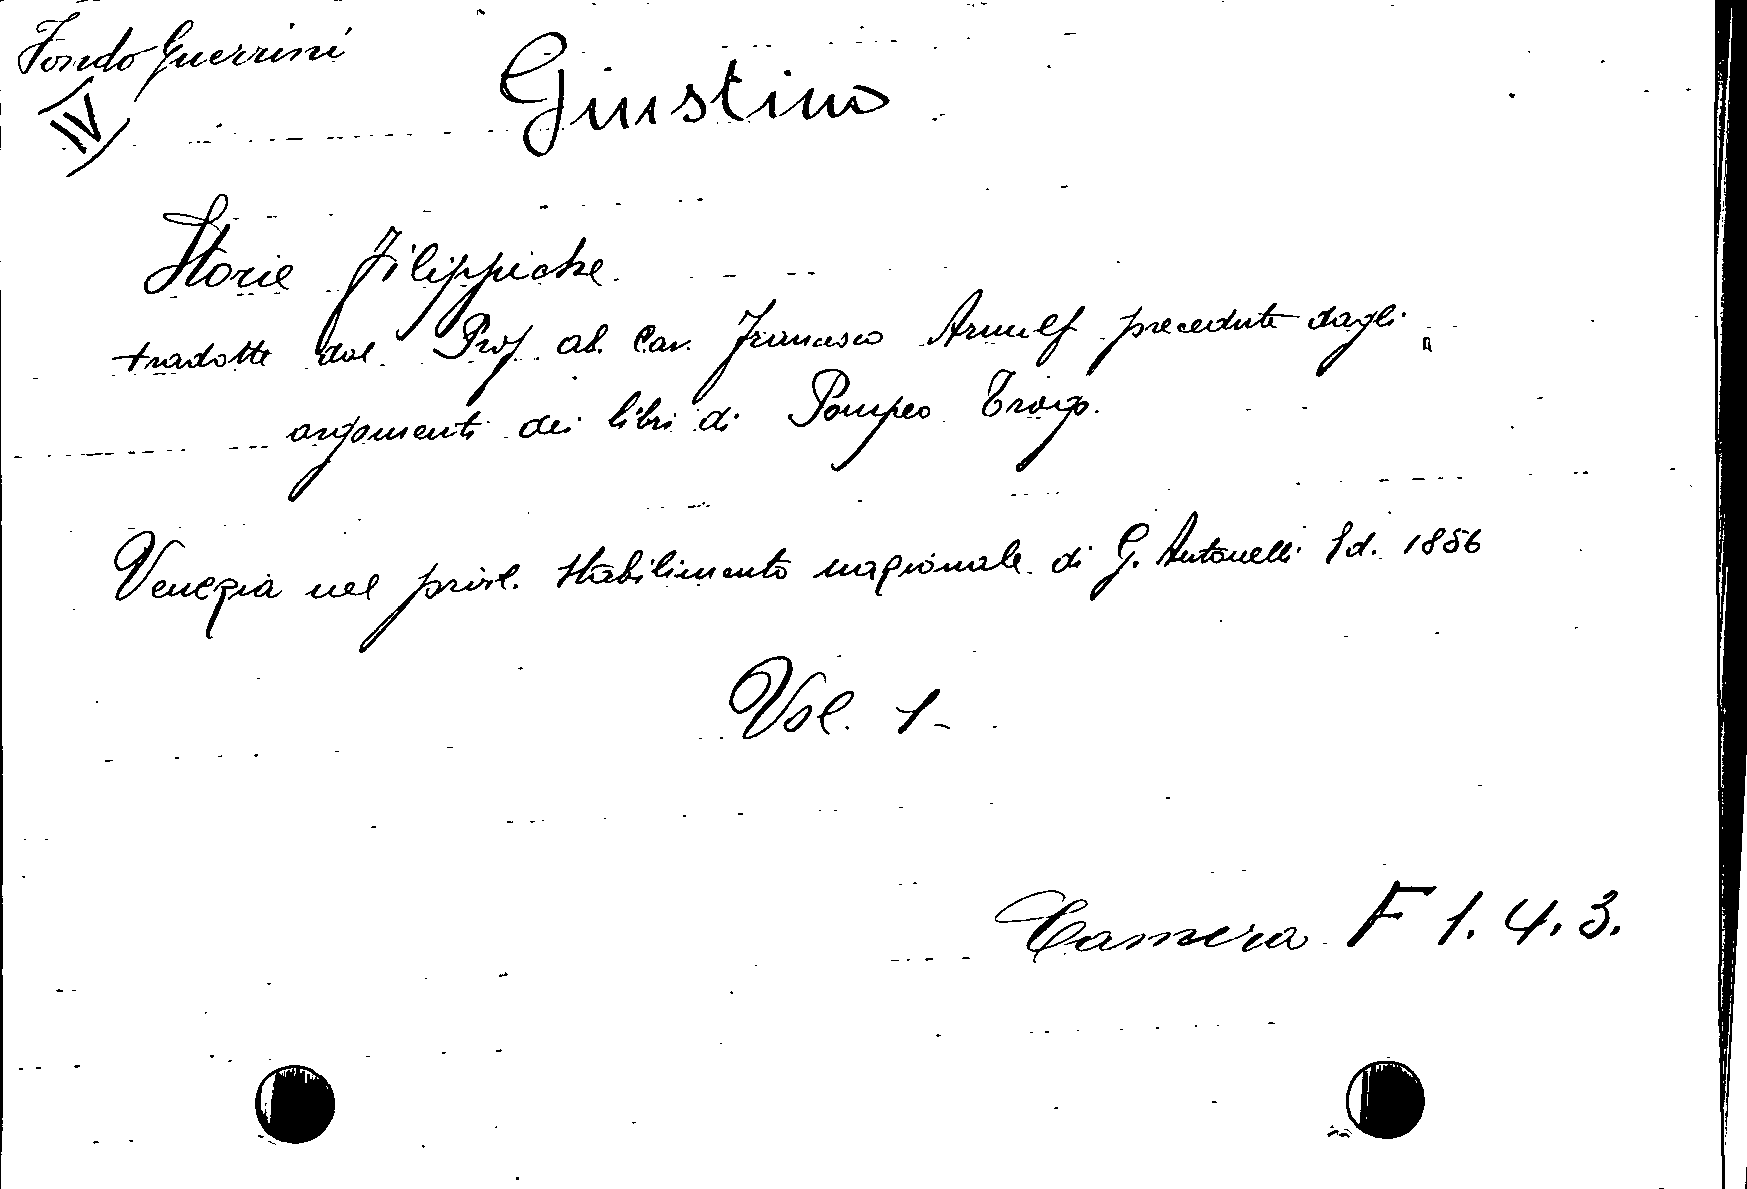 Fondo Guerrini
IV
Giustino
Storie Filippiche
tradotte dal Prof. ab. Cav. Francesco Arnulf precedute dagli
argomenti dei libri di Pompeo Trogo.
Venezia nel privil. stabilimento nazionale di G. Antonelli Ed. 1856
Vol. 1-
Camera F 1.4.3.